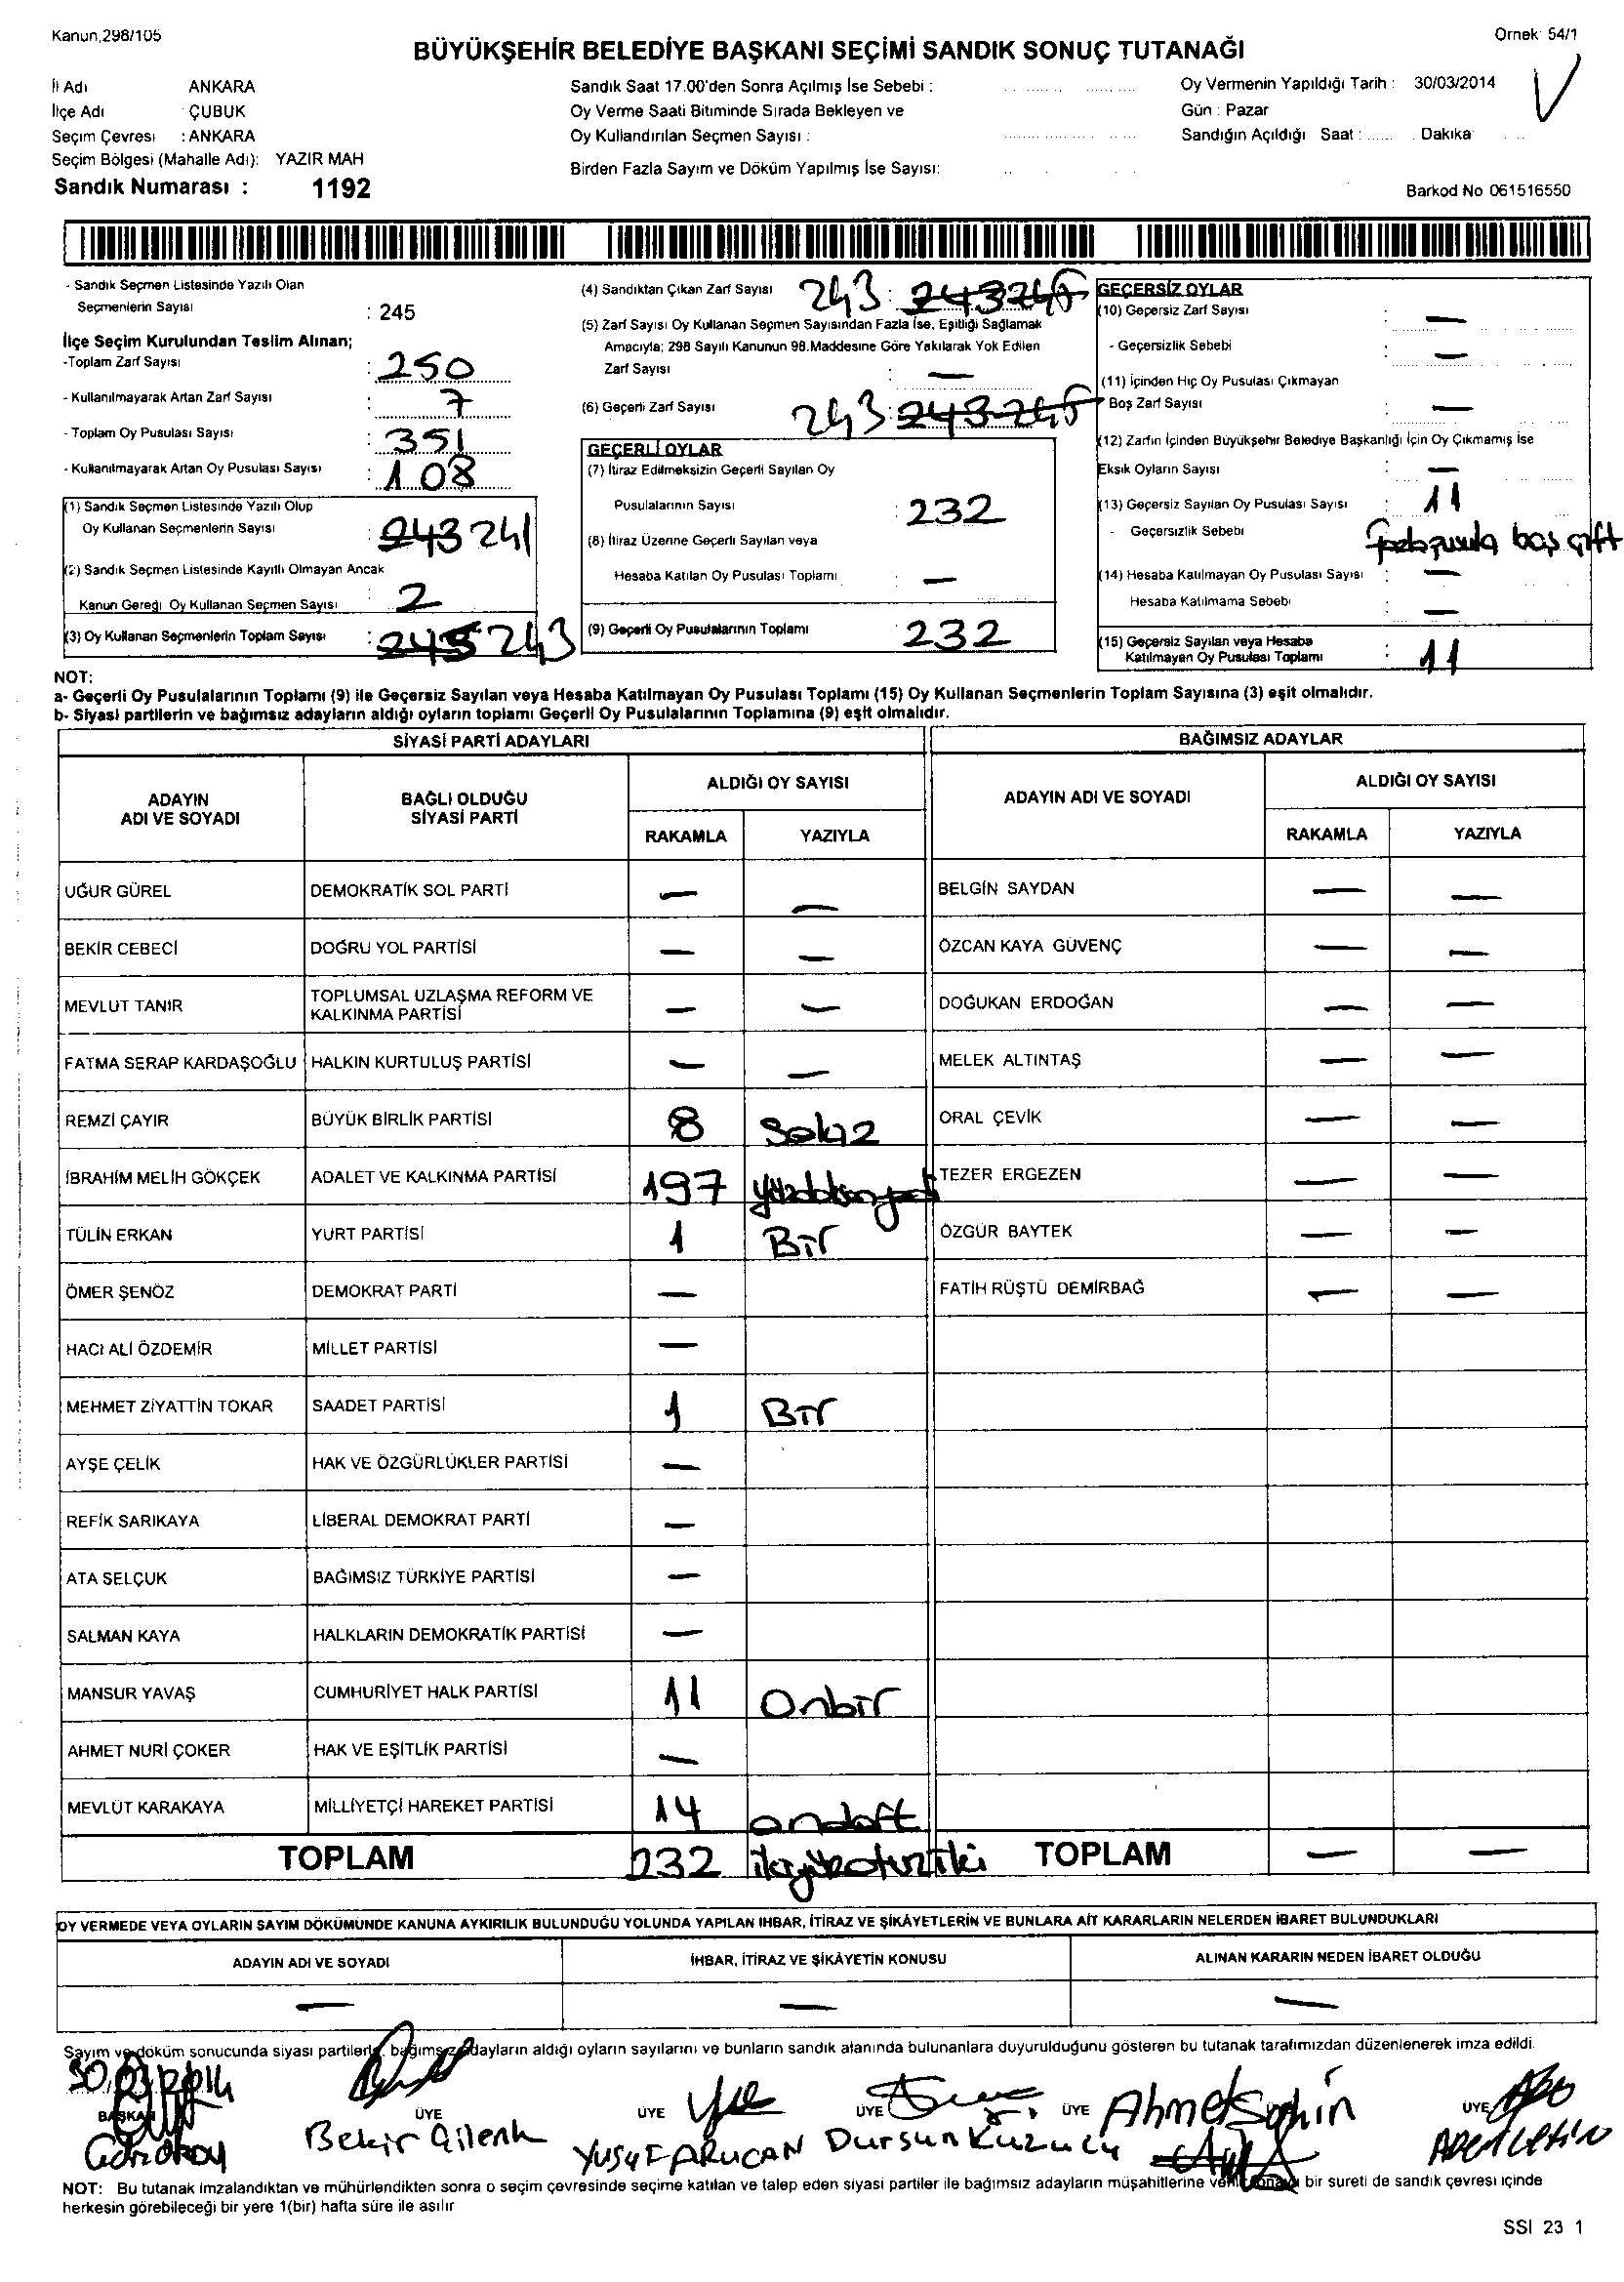 Kanun,298/105
Örnek 54/1
BÜYÜKŞEHİR BELEDİYE BAŞKANI SEÇİMİ SANDIK SONUÇ TUTANAĞI
İl Adı ANKARA
İlçe Adı ÇUBUK
Seçim Çevresi : ANKARA
Seçim Bölgesi (Mahalle Adı): YAZIR MAH
Sandık Numarası : 1192
Sandık Saat 17.00'den Sonra Açılmış İse Sebebi :
Oy Verme Saati Bitiminde Sırada Bekleyen ve
Oy Kullandırılan Seçmen Sayısı :
Birden Fazla Sayım ve Döküm Yapılmış İse Sayısı:
Oy Vermenin Yapıldığı Tarih : 30/03/2014
Gün : Pazar
Sandığın Açıldığı Saat : ...... Dakika
Barkod No 061516550
- Sandık Seçmen Listesinde Yazılı Olan
Seçmenlerin Sayısı : 245
İlçe Seçim Kurulundan Teslim Alınan;
-Toplam Zarf Sayısı : 250
- Kullanılmayarak Artan Zarf Sayısı : 7
- Toplam Oy Pusulası Sayısı : 351
- Kullanılmayarak Artan Oy Pusulası Sayısı : 108
(1) Sandık Seçmen Listesinde Yazılı Olup
Oy Kullanan Seçmenlerin Sayısı : 243 241
(2) Sandık Seçmen Listesinde Kayıtlı Olmayan Ancak
Kanun Gereği Oy Kullanan Seçmen Sayısı : 2
(3) Oy Kullanan Seçmenlerin Toplam Sayısı : 245 243
(4) Sandıktan Çıkan Zarf Sayısı 243 : 243 245
(5) Zarf Sayısı Oy Kullanan Seçmen Sayısından Fazla İse, Eşitliği Sağlamak
Amacıyla; 298 Sayılı Kanunun 98.Maddesine Göre Yakılarak Yok Edilen
Zarf Sayısı : —
(6) Geçerli Zarf Sayısı 243 : 243 245
GEÇERLİ OYLAR
(7) İtiraz Edilmeksizin Geçerli Sayılan Oy
Pusulalarının Sayısı : 232
(8) İtiraz Üzerine Geçerli Sayılan veya
Hesaba Katılan Oy Pusulası Toplamı : —
(9) Geçerli Oy Pusulalarının Toplamı : 232
GEÇERSİZ OYLAR
(10) Geçersiz Zarf Sayısı : —
- Geçersizlik Sebebi : —
(11) İçinden Hiç Oy Pusulası Çıkmayan
Boş Zarf Sayısı : —
(12) Zarfın İçinden Büyükşehir Belediye Başkanlığı İçin Oy Çıkmamış İse
Eksik Oyların Sayısı : —
(13) Geçersiz Sayılan Oy Pusulası Sayısı : 11
- Geçersizlik Sebebi boş çift
(14) Hesaba Katılmayan Oy Pusulası Sayısı : —
Hesaba Katılmama Sebebi : —
(15) Geçersiz Sayılan veya Hesaba
Katılmayan Oy Pusulası Toplamı : 11
NOT:
a- Geçerli Oy Pusulalarının Toplamı (9) ile Geçersiz Sayılan veya Hesaba Katılmayan Oy Pusulası Toplamı (15) Oy Kullanan Seçmenlerin Toplam Sayısına (3) eşit olmalıdır.
b- Siyasi partilerin ve bağımsız adayların aldığı oyların toplamı Geçerli Oy Pusulalarının Toplamına (9) eşit olmalıdır.
SİYASİ PARTİ ADAYLARI BAĞIMSIZ ADAYLAR
ADAYIN ADI VE SOYADI BAĞLI OLDUĞU SİYASİ PARTİ ALDIĞI OY SAYISI ADAYIN ADI VE SOYADI ALDIĞI OY SAYISI
RAKAMLA YAZIYLA RAKAMLA YAZIYLA
UĞUR GÜREL DEMOKRATİK SOL PARTİ — — BELGİN SAYDAN — —
BEKİR CEBECİ DOĞRU YOL PARTİSİ — — ÖZCAN KAYA GÜVENÇ — —
MEVLUT TANIR TOPLUMSAL UZLAŞMA REFORM VE KALKINMA PARTİSİ — — DOĞUKAN ERDOĞAN — —
FATMA SERAP KARDAŞOĞLU HALKIN KURTULUŞ PARTİSİ — — MELEK ALTINTAŞ — —
REMZİ ÇAYIR BÜYÜK BİRLİK PARTİSİ 8 Sekiz ORAL ÇEVİK — —
İBRAHİM MELİH GÖKÇEK ADALET VE KALKINMA PARTİSİ 197 TEZER ERGEZEN — —
TÜLİN ERKAN YURT PARTİSİ 1 Bir ÖZGÜR BAYTEK — —
ÖMER ŞENÖZ DEMOKRAT PARTİ — FATİH RÜŞTÜ DEMİRBAĞ — —
HACI ALİ ÖZDEMİR MİLLET PARTİSİ —
MEHMET ZİYATTİN TOKAR SAADET PARTİSİ 1 Bir
AYŞE ÇELİK HAK VE ÖZGÜRLÜKLER PARTİSİ —
REFİK SARIKAYA LİBERAL DEMOKRAT PARTİ —
ATA SELÇUK BAĞIMSIZ TÜRKİYE PARTİSİ —
SALMAN KAYA HALKLARIN DEMOKRATİK PARTİSİ —
MANSUR YAVAŞ CUMHURİYET HALK PARTİSİ 11 Onbir
AHMET NURİ ÇOKER HAK VE EŞİTLİK PARTİSİ —
MEVLÜT KARAKAYA MİLLİYETÇİ HAREKET PARTİSİ 14 ondört
TOPLAM 232 ikiyüzotuziki TOPLAM — —
OY VERMEDE VEYA OYLARIN SAYIM DÖKÜMÜNDE KANUNA AYKIRILIK BULUNDUĞU YOLUNDA YAPILAN İHBAR, İTİRAZ VE ŞİKÂYETLERİN VE BUNLARA AİT KARARLARIN NELERDEN İBARET BULUNDUKLARI
ADAYIN ADI VE SOYADI İHBAR, İTİRAZ VE ŞİKÂYETİN KONUSU ALINAN KARARIN NEDEN İBARET OLDUĞU
— — —
Sayım ve döküm sonucunda siyasi partilerin, bağımsız adayların aldığı oyların sayılarını ve bunların sandık alanında bulunanlara duyurulduğunu gösteren bu tutanak tarafımızdan düzenlenerek imza edildi.
BAŞKAN ÜYE ÜYE ÜYE ÜYE Ahmet Şahin ÜYE
Bekir YUSUF ARUCAN Dursun Kuzucu
NOT: Bu tutanak imzalandıktan ve mühürlendikten sonra o seçim çevresinde seçime katılan ve talep eden siyasi partiler ile bağımsız adayların müşahitlerine bir sureti de sandık çevresi içinde
herkesin görebileceği bir yere 1(bir) hafta süre ile asılır
SSI 23 1